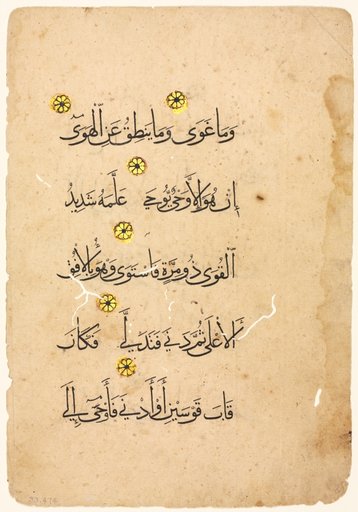 وَمَا غَوَى وَمَا يَنطِقُ عَنِ ٱلْهَوَىٓ
إِنْ هُوَ إِلَّا وَحْىٌ يُوحَى عَلَّمَهُ شَدِيدُ
ٱلْقُوَى ذُو مِرَّةٍ فَاسْتَوَى وَهُوَ بِالْأُفُقِ
ٱلْأَعْلَى ثُمَّ دَنَى فَتَدَلَّى فَكَانَ
قَابَ قَوْسَيْنِ أَوْ أَدْنَى فَأَوْحَىٓ إِلَى